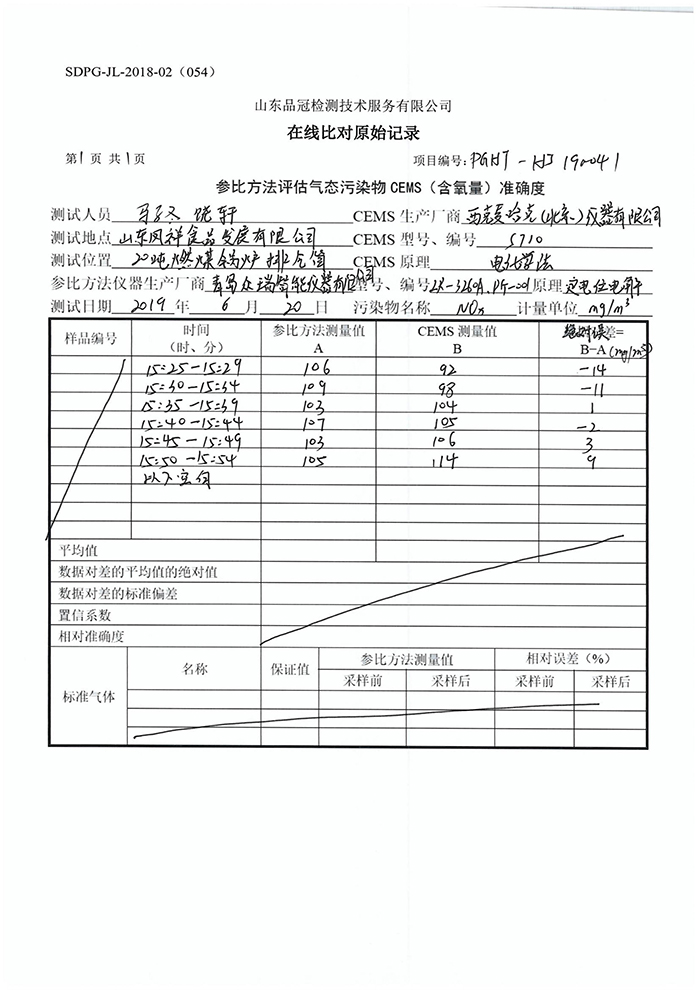 SDPG-JL-2018-02（054）
山东品冠检测技术服务有限公司
在线比对原始记录
第1页 共1页 项目编号: PGHJ-HJ190041
参比方法评估气态污染物 CEMS（含氧量）准确度
测试人员 CEMS 生产厂商 西克麦哈克(北京)仪器有限公司
测试地点 山东凤祥食品发展有限公司 CEMS 型号、编号 S710
测试位置 20吨燃煤锅炉排 CEMS 原理 电化学法
参比方法仪器生产厂商 青岛众瑞智能仪器有限公司 型号、编号 ZR-3260A. 原理 定电位电解
测试日期 2019 年 6 月 20 日 污染物名称 NOx 计量单位 mg/m³
样品编号 时间（时、分） 参比方法测量值 A CEMS 测量值 B 绝对误差= B-A (mg/m³)
15:25-15:29 106 92 -14
15:30-15:34 109 98 -11
15:35-15:39 103 104 1
15:40-15:44 107 105 -2
15:45-15:49 103 106 3
15:50-15:54 105 114 9
以下空白
平均值
数据对差的平均值的绝对值
数据对差的标准偏差
置信系数
相对准确度
标准气体 名称 保证值 参比方法测量值 相对误差（%）
采样前 采样后 采样前 采样后